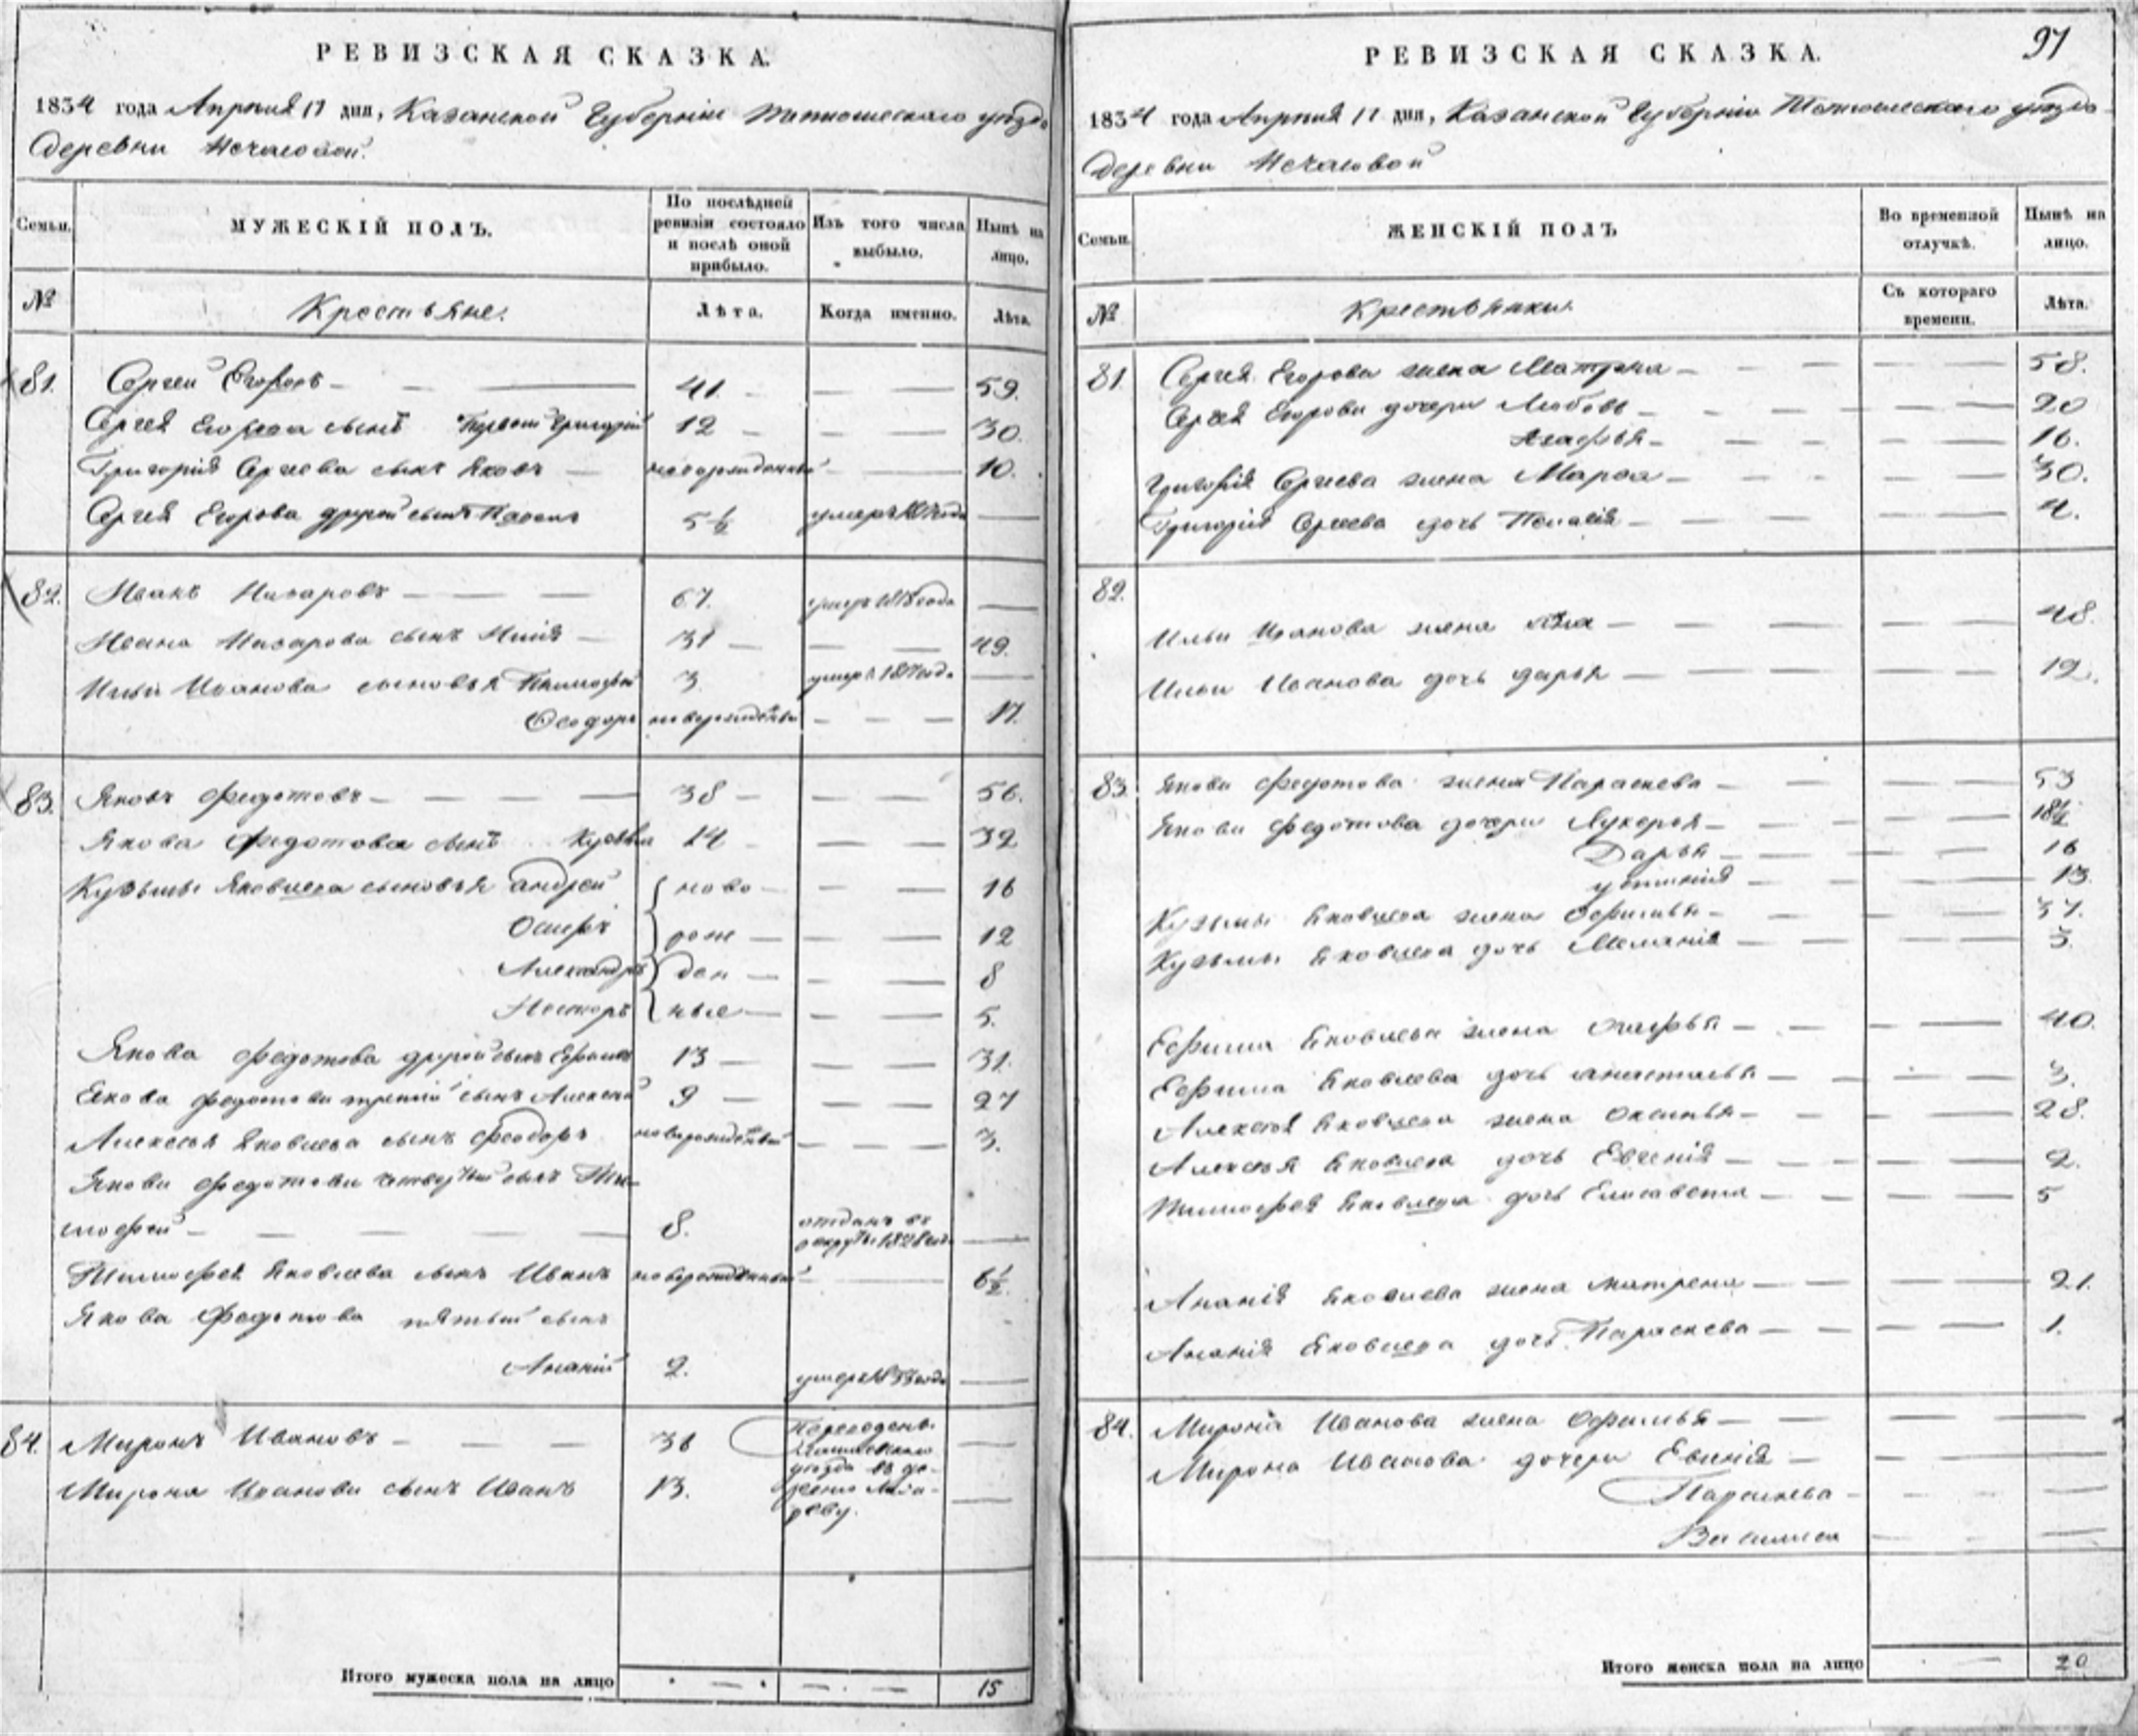 РЕВИЗСКАЯ СКАЗКА.
1834 года Апрѣля 17 дня, Казанской Губерніи Тетюшескаго уѣзда
Деревни Нечасовой.
Семьи.
МУЖЕСКІЙ ПОЛЪ.
По послѣдней ревизіи состояло и послѣ оной прибыло.
Изъ того числа выбыло.
Нынѣ на лицо.
№
Крестьяне.
Лѣта.
Когда именно.
Лѣта.
81. Сергей Егоровъ — 41. — 59.
Сергея Егорова сынъ Первой Григорий 12 — 30.
Григорія Сергеева сынъ Яковъ — новорожденный — 10.
Сергея Егорова другой сынъ 5½ умеръ года —
82. Иванъ Назаровъ — 67. умеръ 1818 года —
Ивана Назарова сынъ Илія — 31 — 49.
Ильи Иванова сыновья Тимофей 3. умеръ года —
Феодоръ новорожденный — 17.
83. Яковъ Федотовъ — 38 — 56.
Якова Федотова сынъ Кузьма 14 — 32
Кузьмы Яковлева сыновья Андрей ново — 16
Осипъ рож — 12
Александръ ден — 8
Несторъ ные — 5.
Якова Федотова другой сынъ Ефимъ 13 — 31.
Якова Федотова третій сынъ Алексей 9 — 27
Алексея Яковлева сынъ Феодоръ новорожденный — 3.
Якова Федотова четвертый сынъ Ти-
мофей — 8. отданъ въ рекруты 1828 года —
Тимофея Яковлева сынъ Иванъ новорожденный — 6½.
Якова Федотова пятый сынъ
Ананій 2. умеръ 1833 года —
84. Миронъ Ивановъ — 31 Переведены
уѣзда въ де-
Мирона Иванова сынъ Иванъ 13. ревню —
Итого мужеска пола на лицо — 15
97
РЕВИЗСКАЯ СКАЗКА.
1834 года Апрѣля 17 дня, Казанской Губерніи Тетюшескаго уѣзда
Деревни Нечасовой
Семьи.
ЖЕНСКІЙ ПОЛЪ
Во временной отлучкѣ.
Нынѣ на лицо.
№
Крестьянки.
Съ котораго времени.
Лѣта.
81. Сергея Егорова жена Матрена — 58.
Сергея Егорова дочери Любовь — 20
Агафья — 16.
Григорія Сергеева жена Марфа — 30.
Григорія Сергеева дочь Пелагія — 4.
82.
Ильи Иванова жена — 48.
Ильи Иванова дочь Дарья — 12.
83. Якова Федотова жена Параскева — 53
Якова Федотова дочери Лукерья — 18½
Дарья — 16
Устинія — 13.
Кузьмы Яковлева жена Офимья — 37.
Кузьмы Яковлева дочь Меланія — 3.
Ефима Яковлева жена Агафья — 40.
Ефима Яковлева дочь Анастасья — 3.
Алексея Яковлева жена Оксинья — 28.
Алексея Яковлева дочь Евгенія — 2.
Тимофея Яковлева дочь Елисавета — 5
Ананія Яковлева жена Матрена — 21.
Ананія Яковлева дочь Параскева — 1.
84. Мирона Иванова жена Офимья —
Мирона Иванова дочери —
Параскева —
Василиса —
Итого женска пола на лицо — 20